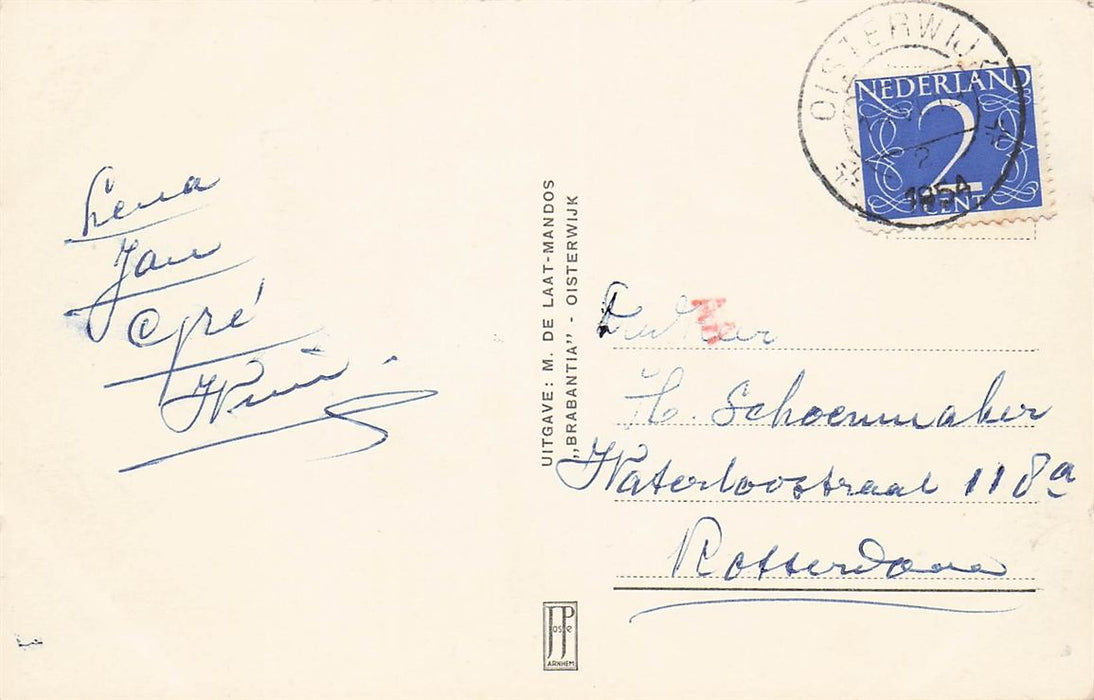 OISTERWIJK
NEDERLAND
2
1954
CENT
Lena
Jan
Gré
Wim
UITGAVE: M. DE LAAT-MANDOS
„BRABANTIA” - OISTERWIJK
H. Schoenmaker
Waterloostraat 118a
Rotterdam
JosPé
ARNHEM